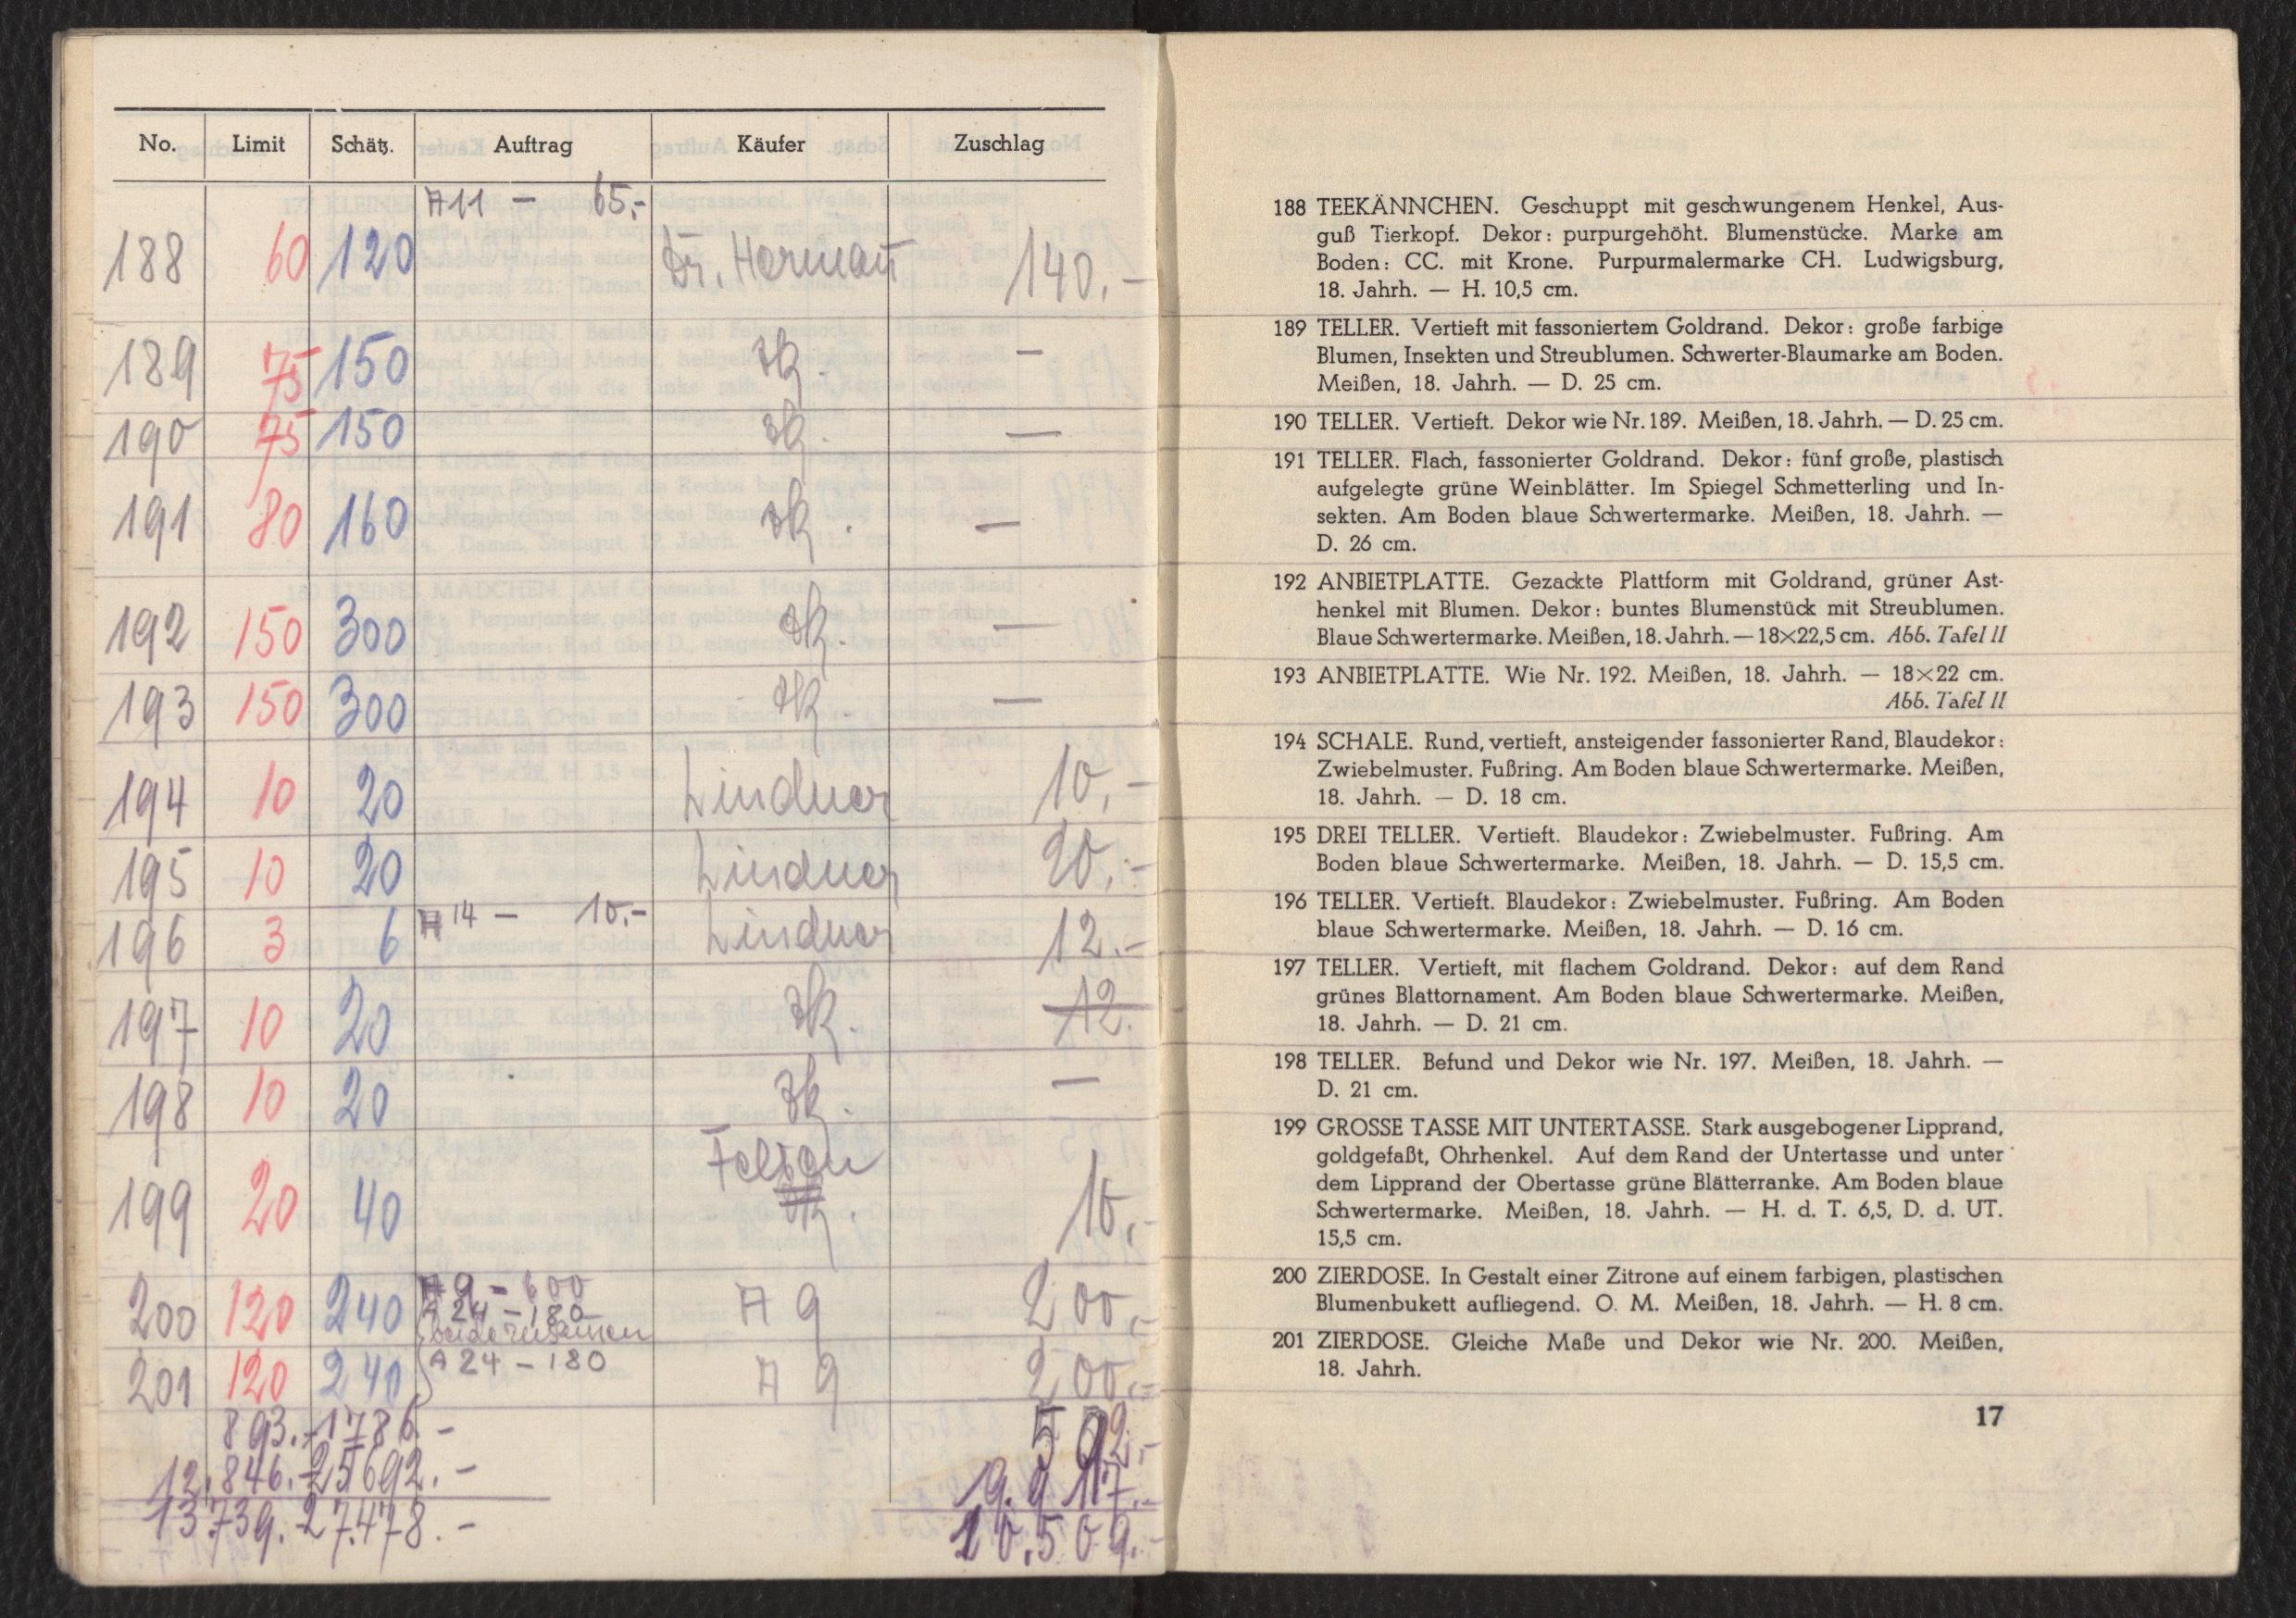 No. Limit Schätz. Auftrag Käufer Zuschlag
A11 — 65,-
188 60 120 Dr. Herman 140.-
189 75 150 zk. —
190 75 150 zk. —
191 80 160 zk. —
192 150 300 zk. —
193 150 300 zk. —
194 10 20 Lindner 10,-
195 10 20 Lindner 20,-
196 3 6 A14 — 10,- Lindner 12.-
197 10 20 zk. 12.
198 10 20 zk. —
199 20 40 10,-
A9 - 600
200 120 240 A24 - 180 A 9 200,-
201 120 240 A24 - 180 A 9 200,-
893.- 1786.- 592,-
12,846.- 25692.- 9.917.-
13739.- 27.478.- 10.509.-
188 TEEKÄNNCHEN. Geschuppt mit geschwungenem Henkel, Aus-
guß Tierkopf. Dekor: purpurgehöht. Blumenstücke. Marke am
Boden: CC. mit Krone. Purpurmalermarke CH. Ludwigsburg,
18. Jahrh. — H. 10,5 cm.
189 TELLER. Vertieft mit fassoniertem Goldrand. Dekor: große farbige
Blumen, Insekten und Streublumen. Schwerter-Blaumarke am Boden.
Meißen, 18. Jahrh. — D. 25 cm.
190 TELLER. Vertieft. Dekor wie Nr. 189. Meißen, 18. Jahrh. — D. 25 cm.
191 TELLER. Flach, fassonierter Goldrand. Dekor: fünf große, plastisch
aufgelegte grüne Weinblätter. Im Spiegel Schmetterling und In-
sekten. Am Boden blaue Schwertermarke. Meißen, 18. Jahrh. —
D. 26 cm.
192 ANBIETPLATTE. Gezackte Plattform mit Goldrand, grüner Ast-
henkel mit Blumen. Dekor: buntes Blumenstück mit Streublumen.
Blaue Schwertermarke. Meißen, 18. Jahrh. — 18×22,5 cm. Abb. Tafel II
193 ANBIETPLATTE. Wie Nr. 192. Meißen, 18. Jahrh. — 18×22 cm.
Abb. Tafel II
194 SCHALE. Rund, vertieft, ansteigender fassonierter Rand, Blaudekor:
Zwiebelmuster. Fußring. Am Boden blaue Schwertermarke. Meißen,
18. Jahrh. — D. 18 cm.
195 DREI TELLER. Vertieft. Blaudekor: Zwiebelmuster. Fußring. Am
Boden blaue Schwertermarke. Meißen, 18. Jahrh. — D. 15,5 cm.
196 TELLER. Vertieft. Blaudekor: Zwiebelmuster. Fußring. Am Boden
blaue Schwertermarke. Meißen, 18. Jahrh. — D. 16 cm.
197 TELLER. Vertieft, mit flachem Goldrand. Dekor: auf dem Rand
grünes Blattornament. Am Boden blaue Schwertermarke. Meißen,
18. Jahrh. — D. 21 cm.
198 TELLER. Befund und Dekor wie Nr. 197. Meißen, 18. Jahrh. —
D. 21 cm.
199 GROSSE TASSE MIT UNTERTASSE. Stark ausgebogener Lipprand,
goldgefaßt, Ohrhenkel. Auf dem Rand der Untertasse und unter
dem Lipprand der Obertasse grüne Blätterranke. Am Boden blaue
Schwertermarke. Meißen, 18. Jahrh. — H. d. T. 6,5, D. d. UT.
15,5 cm.
200 ZIERDOSE. In Gestalt einer Zitrone auf einem farbigen, plastischen
Blumenbukett aufliegend. O. M. Meißen, 18. Jahrh. — H. 8 cm.
201 ZIERDOSE. Gleiche Maße und Dekor wie Nr. 200. Meißen,
18. Jahrh.
17